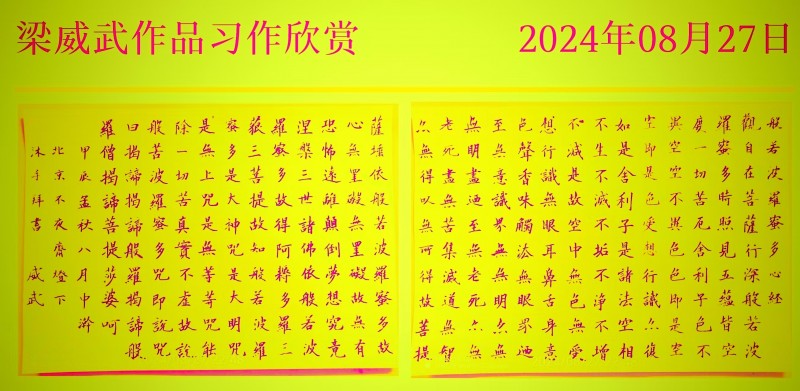 梁威武作品习作欣赏
2024年08月27日
般若波羅蜜多心經
觀自在菩薩行深般若波
羅蜜多時照見五蘊皆空
度一切苦厄舍利子色不
異空空不異色色即是空
空即是色受想行識亦復
如是舍利子是諸法空相
不生不滅不垢不淨不增
不減是故空中無色無受
想行識無眼耳鼻舌身意
無色聲香味觸法無眼界迺
至無意識界無無明亦無
無明盡迺至無老死亦無
老死盡無苦集滅道無智
亦無得以無所得故菩提
薩埵依般若波羅蜜多故
心無罣礙無罣礙故無有
恐怖遠離顛倒夢想究竟
涅槃三世諸佛依般若波
羅蜜多故得阿耨多羅三
藐三菩提故知般若波羅
蜜多是大神咒是大明咒
是無上咒是無等等咒能
除一切苦真實不虛故說
般若波羅蜜多咒即說咒
曰揭諦揭諦般羅揭諦般
羅僧揭諦菩提莎婆呵
甲辰孟秋八月中澣
北京不夜齋燈下
沐手拜書 威武